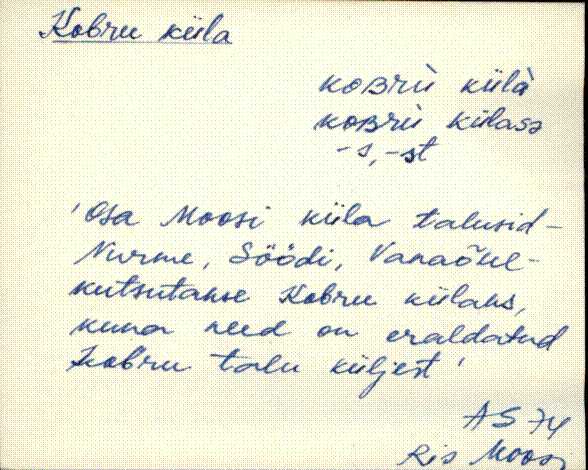 Kobru küla
KOBRÙ külà
KOBRÙ külass
-s, -st
'Osa Moosi küla talusid -
Nurme, Söödi, Vanaõue -
kutsutakse Kobru külaks,
kuna need on eraldatud
Kobru talu küljest'
AS 74
Ris Moosi